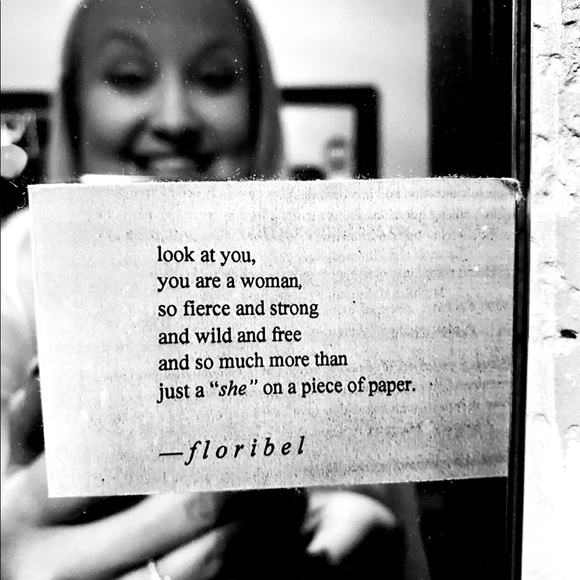 look at you,
you are a woman,
so fierce and strong
and wild and free
and so much more than
just a “she” on a piece of paper.
—floribel